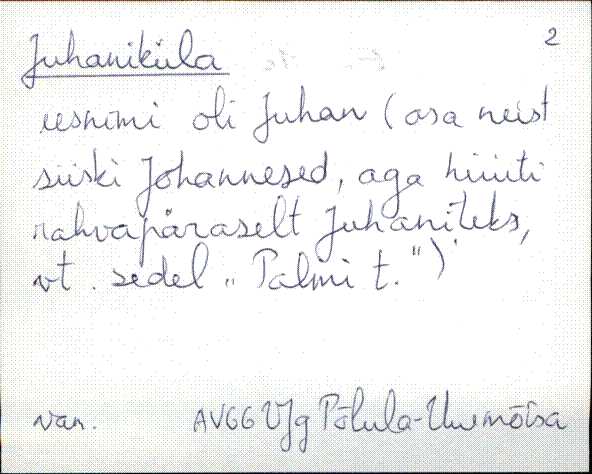 Juhaniküla 2
eesnimi oli Juhan (osa neist
siiski Johannesed, aga hüüti
rahvapäraselt Juhaniteks,
vt. sedel „Palmi t.").
van. AVGG VJg Põlula-Uuemõisa